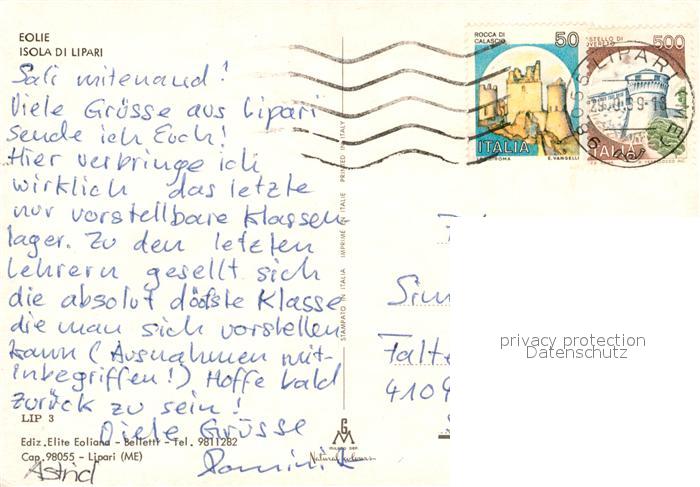 EOLIE
ISOLA DI LIPARI
Sali mitenand!
Viele Grüsse aus Lipari
sende ich Euch!
Hier verbringe ich
wirklich das letzte
nur vorstellbare Klassen-
lager. Zu den letzten
Lehrern gesellt sich
die absolut döofste Klasse
die man sich vorstellen
kann (Ausnahmen mit-
inbegriffen!) Hoffe bald
zurück zu sein!
Viele Grüsse
Dominik
Astrid
LIP 3
Ediz. Elite Eoliana - Belletti - Tel. 9811282
Cap. 98055 - Lipari (ME)
STAMPATO IN ITALIA IMPRIME EN ITALIE PRINTED IN ITALY
ROCCA DI
CALASCIO
50
ITALIA
E. VANGELLI
500
LIPARI
Sim
Falt
4109
privacy protection
Datenschutz